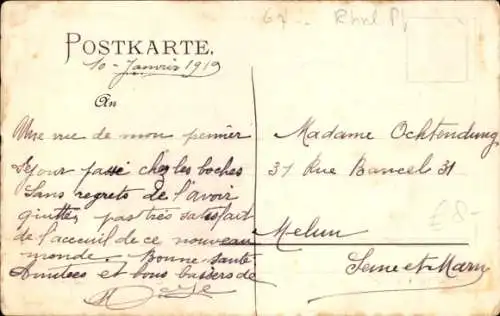 67 Rhnl Pf
POSTKARTE.
10 - Janvier 1919
An
Une vue de mon pemier
Séjour passé chez les boches
Sans regrets de l'avoir
quittés pas très satisfait
de l'acceuil de ce nouveau
monde. Bonne santé
Amitiées et bons baisers de
Madame Ochtendung
31 Rue Bancel 31
£8-
Melun
Seine et Marn